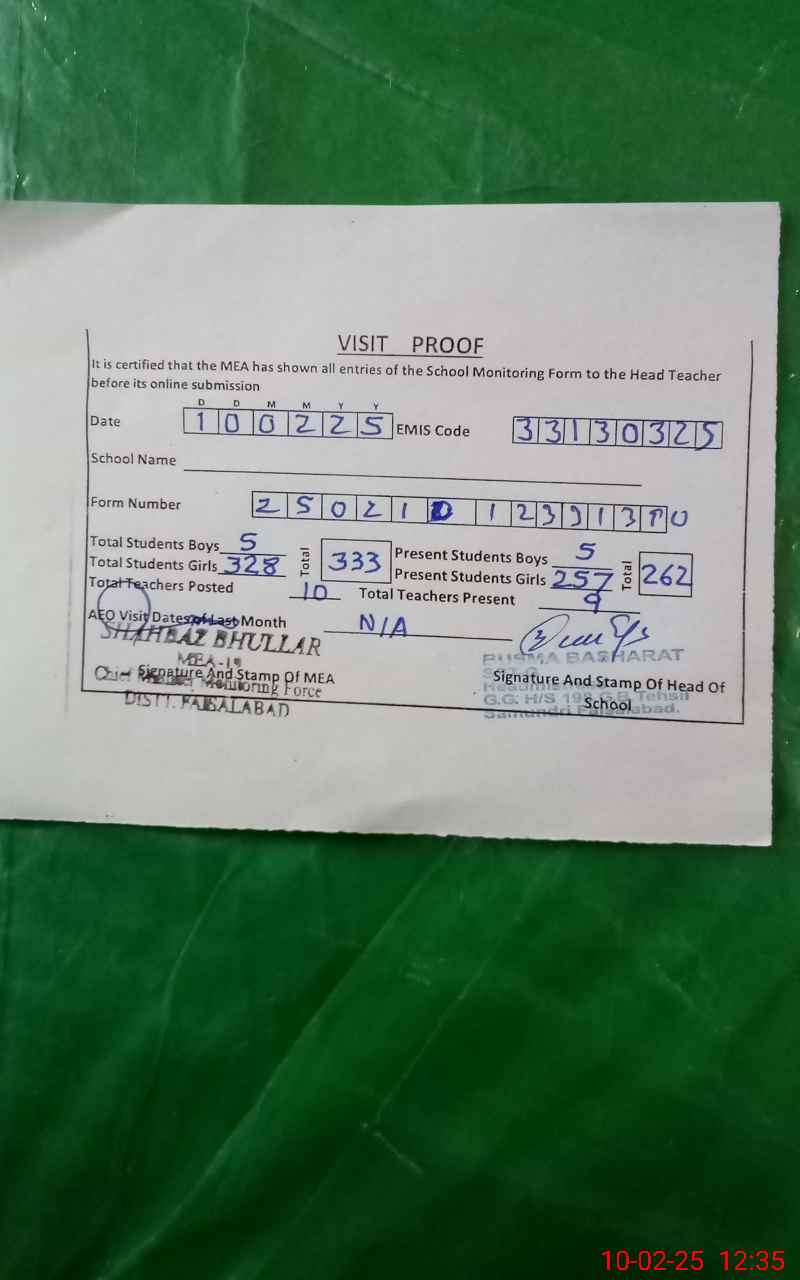 VISIT PROOF
It is certified that the MEA has shown all entries of the School Monitoring Form to the Head Teacher
before its online submission
D D M M Y Y
Date 1 0 0 2 2 5 EMIS Code 3 3 1 3 0 3 2 5
School Name
Form Number 2 5 0 2 1 0 1 2 3 9 1 3
Total Students Boys 5 Total 333 Present Students Boys 5 Total 262
Total Students Girls 328 Present Students Girls 257
Total Teachers Posted 10 Total Teachers Present 9
AEO Visit Dates of Last Month N/A
SHAHBAZ BHULLAR
MEA-19
Signature And Stamp Of MEA
Chief Monitoring Force
DISTT. FAISALABAD
BASHARAT
Signature And Stamp Of Head Of
School
G.G. H/S 198 G.B. Tehsil
Samundri Faisalabad.
10-02-25 12:35